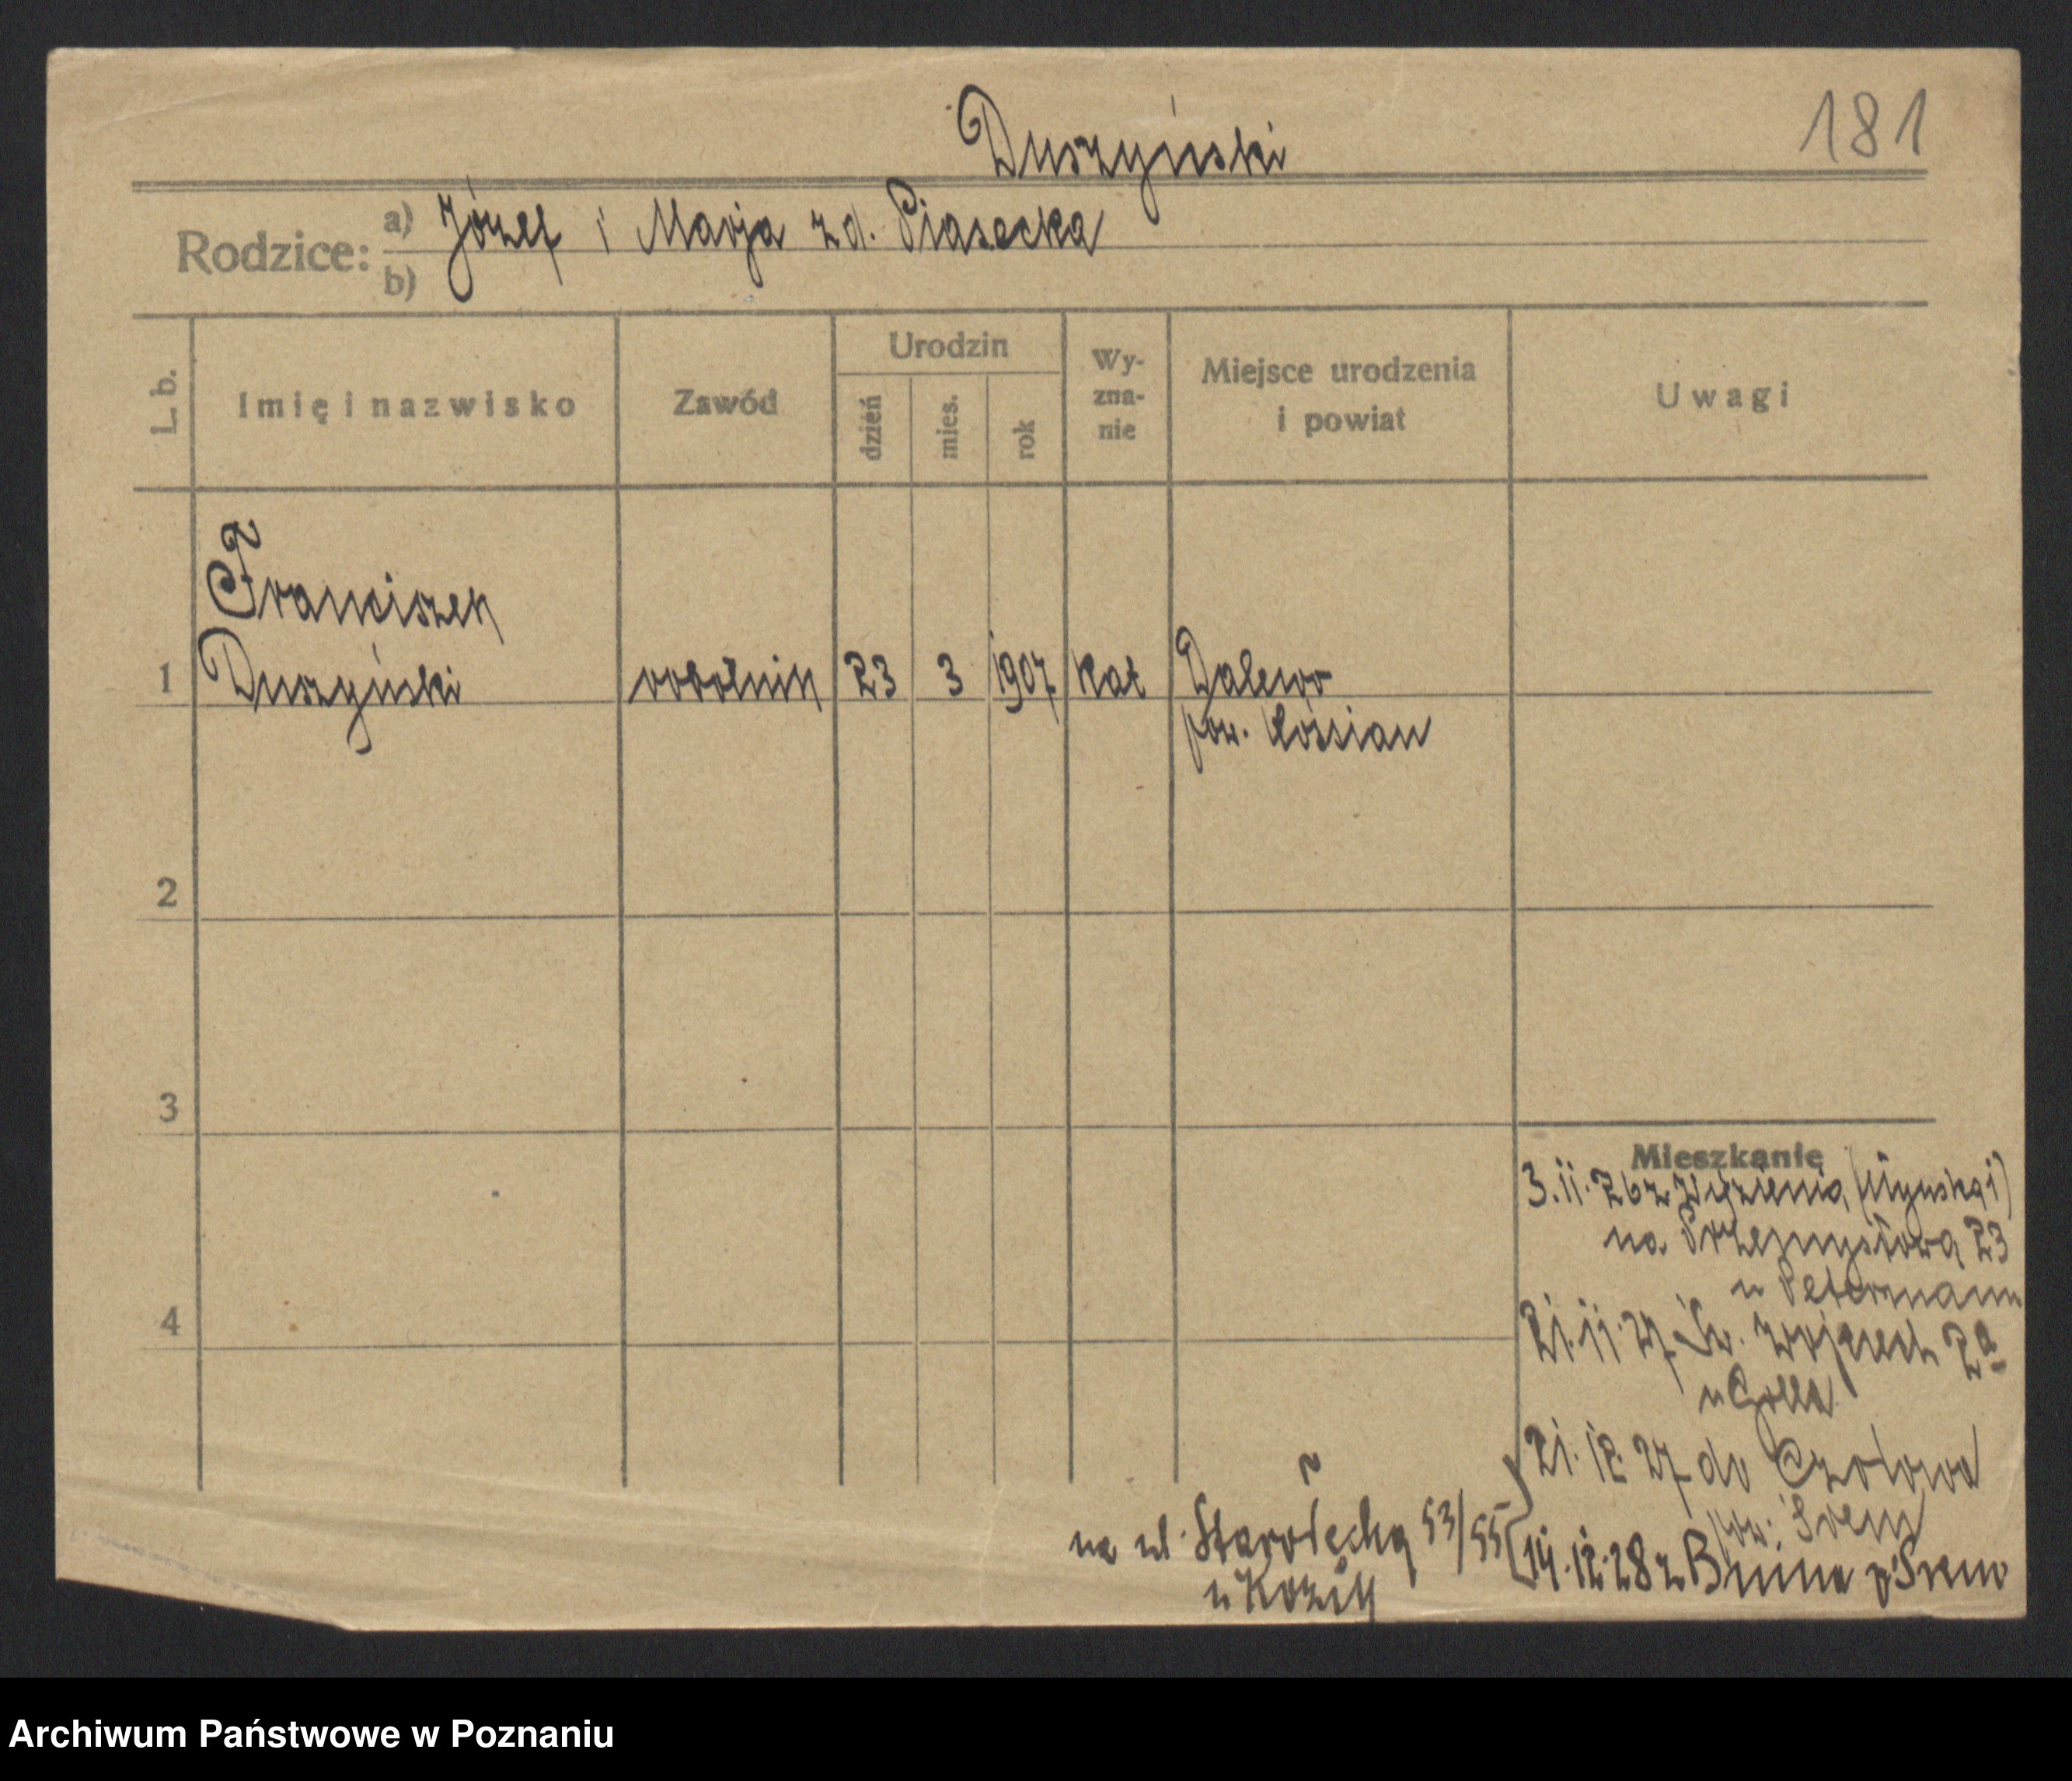 181
Duszyński
Rodzice: a) Józef i Marja z d. Piasecka
b)
L. b. Imię i nazwisko Zawód Urodzin dzień mies. rok Wy-zna-nie Miejsce urodzenia i powiat Uwagi
Franciszek
1 Duszyński robotnik 23 3 1907 kat Dalewo
pow. Kościan
2
3
Mieszkanie
3.11.26 z więzienia (Młyńska 1)
na Przemysłową 23
u Petermann
4
21.11.27 Św. Wojciech 2a
u Golla
21.12.27 do Czołowa
pow. Śrem
14.12.28 z Bnina p. Śrem
na ul. Starołęcką 53/55
u Kozi
Archiwum Państwowe w Poznaniu